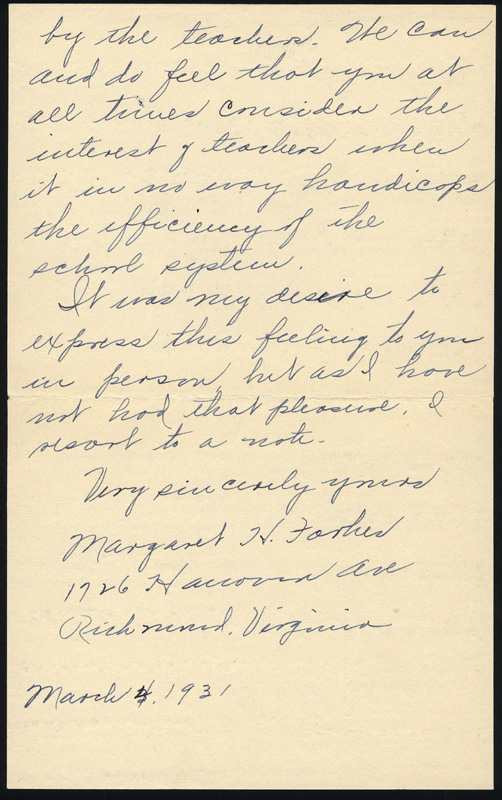 by the teachers. We can
and do feel that you at
all times consider the
interest of teachers when
it in no way handicaps
the efficiency of the
school system.
It was my desire to
express this feeling to you
in person, but as I have
not had that pleasure, I
resort to a note.
Very sincerely yours
Margaret H. Forbes
1726 Hanover Ave
Richmond, Virginia
March 4, 1931